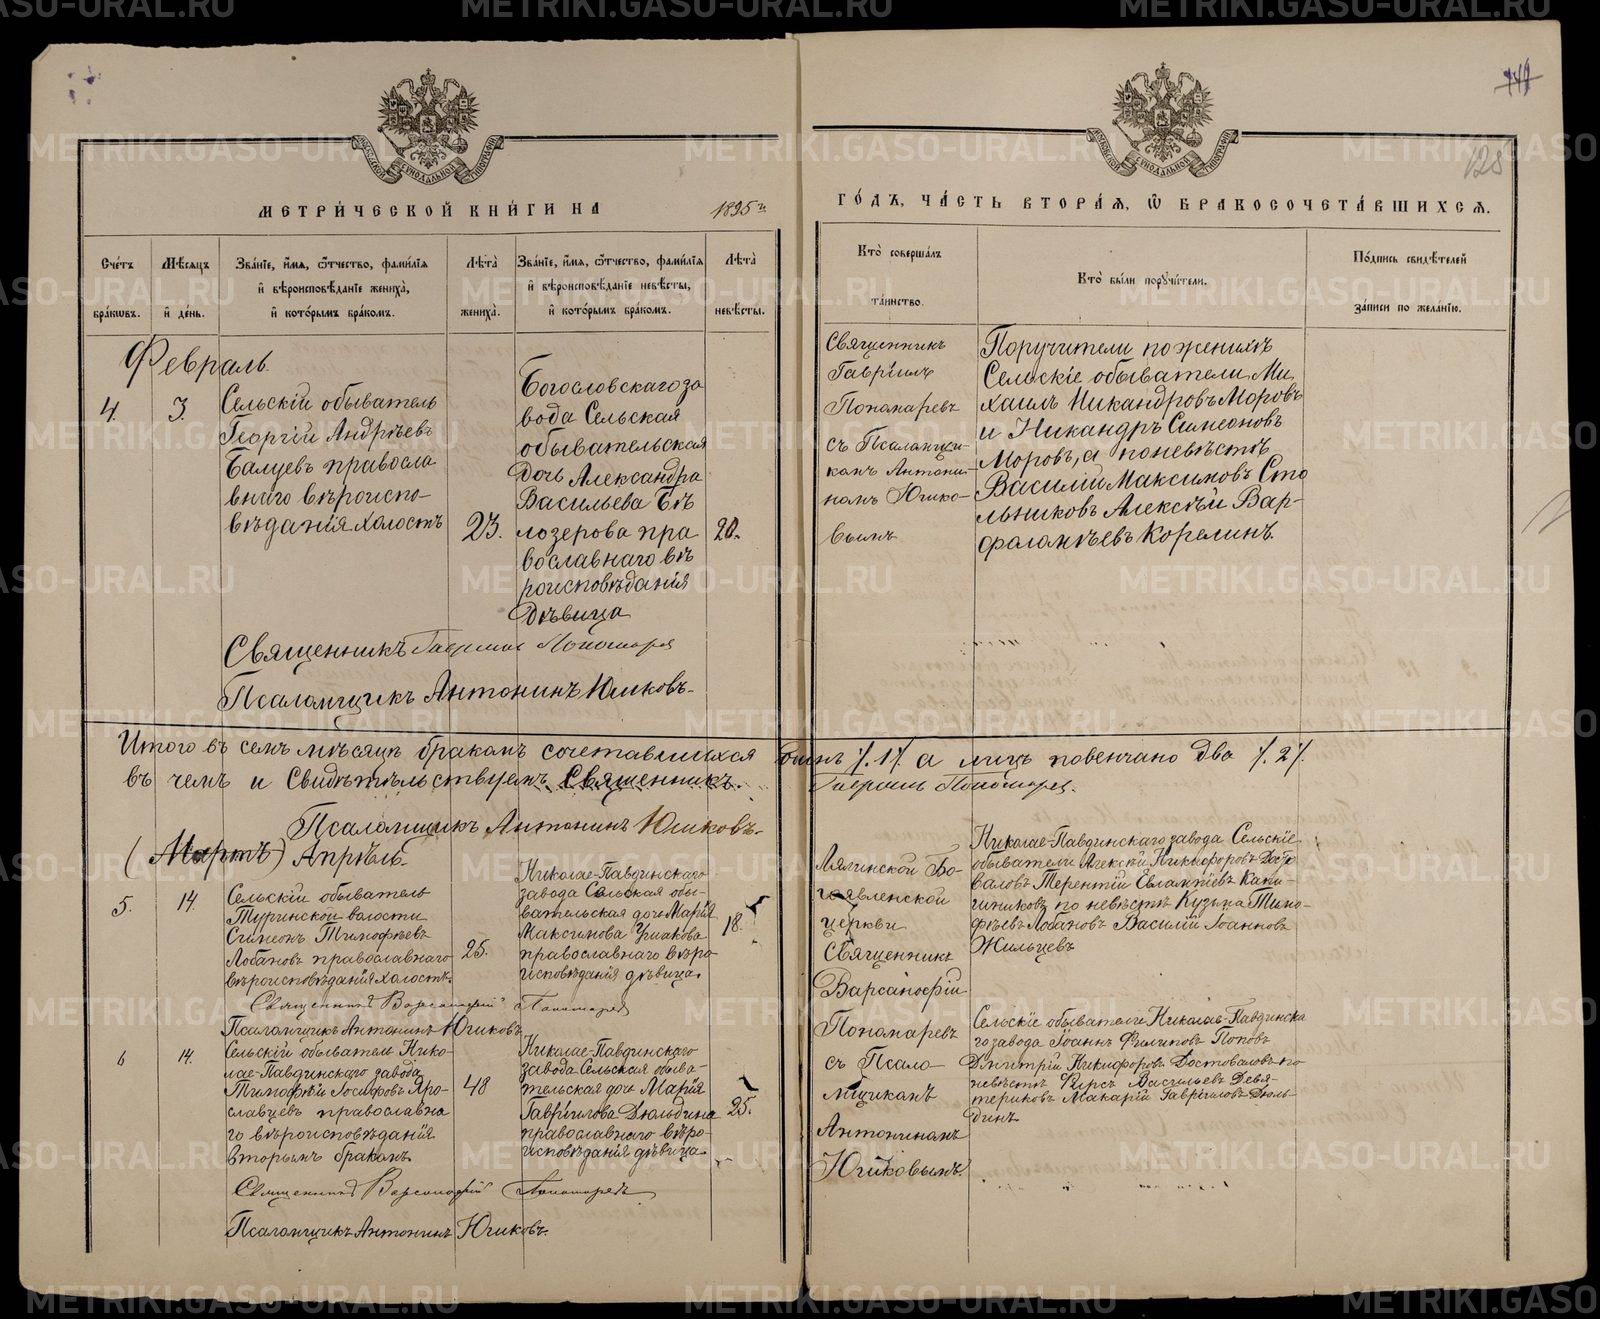 МЕТРИ́ЧЕСКОЙ КНИ́ГИ НА 1895 г.
ГО́ДЪ, ЧА́СТЬ ВТОРА́Я, Ѿ БРАКОСОЧЕТА́ВШИХСЯ.
128
Сче́тъ бра́кѡвъ.
Мѣ́сяцъ и́ де́нь.
Зва́нїе, и́мя, ѻ́тчество, фами́лїя и́ вѣроисповѣ́данїе жениха́, и́ кото́рымъ бра́комъ.
Лѣ́та жениха̀.
Зва́нїе, и́мя, ѻ́тчество, фами́лїя и́ вѣроисповѣ́данїе невѣ́сты, и́ кото́рымъ бра́комъ.
Лѣ́та невѣ́сты.
Кто̀ соверша́лъ та́инство.
Кто̀ бы́ли порꙋчи́тели.
По́дпись свидѣ́телей за́писи по жела́нїю.
Февраль
4.
3.
Сельскій обыватель
Георгій Андрѣевъ
Балуевъ правосла
внаго вѣроиспо-
вѣданія холостъ
23.
Богословскаго за
вода Сельская
обывательская
дочь Александра
Васильева Бѣ
лозерова пра
вославнаго вѣ
роисповѣданія
дѣвица
20.
Священникъ
Гавріилъ
Пономаревъ
съ Псаломщи-
комъ Антони-
номъ Юшко-
вымъ
Поручители по женихѣ
Сельскіе обыватели Ми
хаилъ Никандровъ Моровъ
и Никандръ Симеоновъ
Моровъ, а по невѣстѣ
Василій Максимовъ Сто
льниковъ Алексѣй Вар-
фоломѣевъ Корелинъ.
Священникъ Гавріилъ Пономарев
Псаломщикъ Антонинъ Юшковъ.
Итого въ семъ мѣсяцѣ бракомъ сочетавшихся одинъ /.1/. а лицъ повенчано два /.2/.
въ чемъ и Свидѣтельствуемъ. Священникъ. Гавріилъ Пономарев.
Псаломщикъ Антонинъ Юшковъ.
(Мартъ) Апрѣль.
5.
14.
Сельскій обыватель
Туринской волости
Симеонъ Тимофѣевъ
Лобановъ православнаго
вѣроисповѣданія холостъ.
25.
Николае-Павдинскаго
завода Сельская обы-
вательская дочь Марія
Максимова Ушакова
православнаго вѣро
исповѣданія дѣвица.
18.
Лялинской Бо-
гоявленской
церкви
Священникъ
Варсанофій
Пономаревъ
съ Псало-
мщикомъ
Антониномъ
Юшковымъ.
Николае-Павдинскаго завода Сельскіе
обыватели Алексѣй Никифоровъ Досто
валовъ Терентій Евлампіевъ
по невѣстѣ Кузьма Тимо-
фѣевъ Лобановъ Василій Іоанновъ
Жильцевъ
Священникъ Варсанофій Пономаревъ
Псаломщикъ Антонинъ Юшковъ
6
14.
Сельскій обыватель Нико-
лае-Павдинскаго завода
Тимофѣй Іосифовъ Яро-
славцевъ православна
го вѣроисповѣданія
вторымъ бракомъ.
48
Николае-Павдинскаго
завода Сельская обыва-
тельская дочь Марія
Гавріилова Дюльдина
православнаго вѣро-
исповѣданія дѣвица
25.
Сельскіе обыватели Николае-Павдинска
го завода Іоаннъ Филиповъ Поповъ
Дмитрій Никифоровъ Достоваловъ по
невѣстѣ Фирсъ Васильевъ Девя-
териковъ Макарій Гавріиловъ Дюль-
динъ
Священникъ Варсанофій Пономаревъ
Псаломщикъ Антонинъ Юшковъ.
METRIKI.GASO-URAL.RU